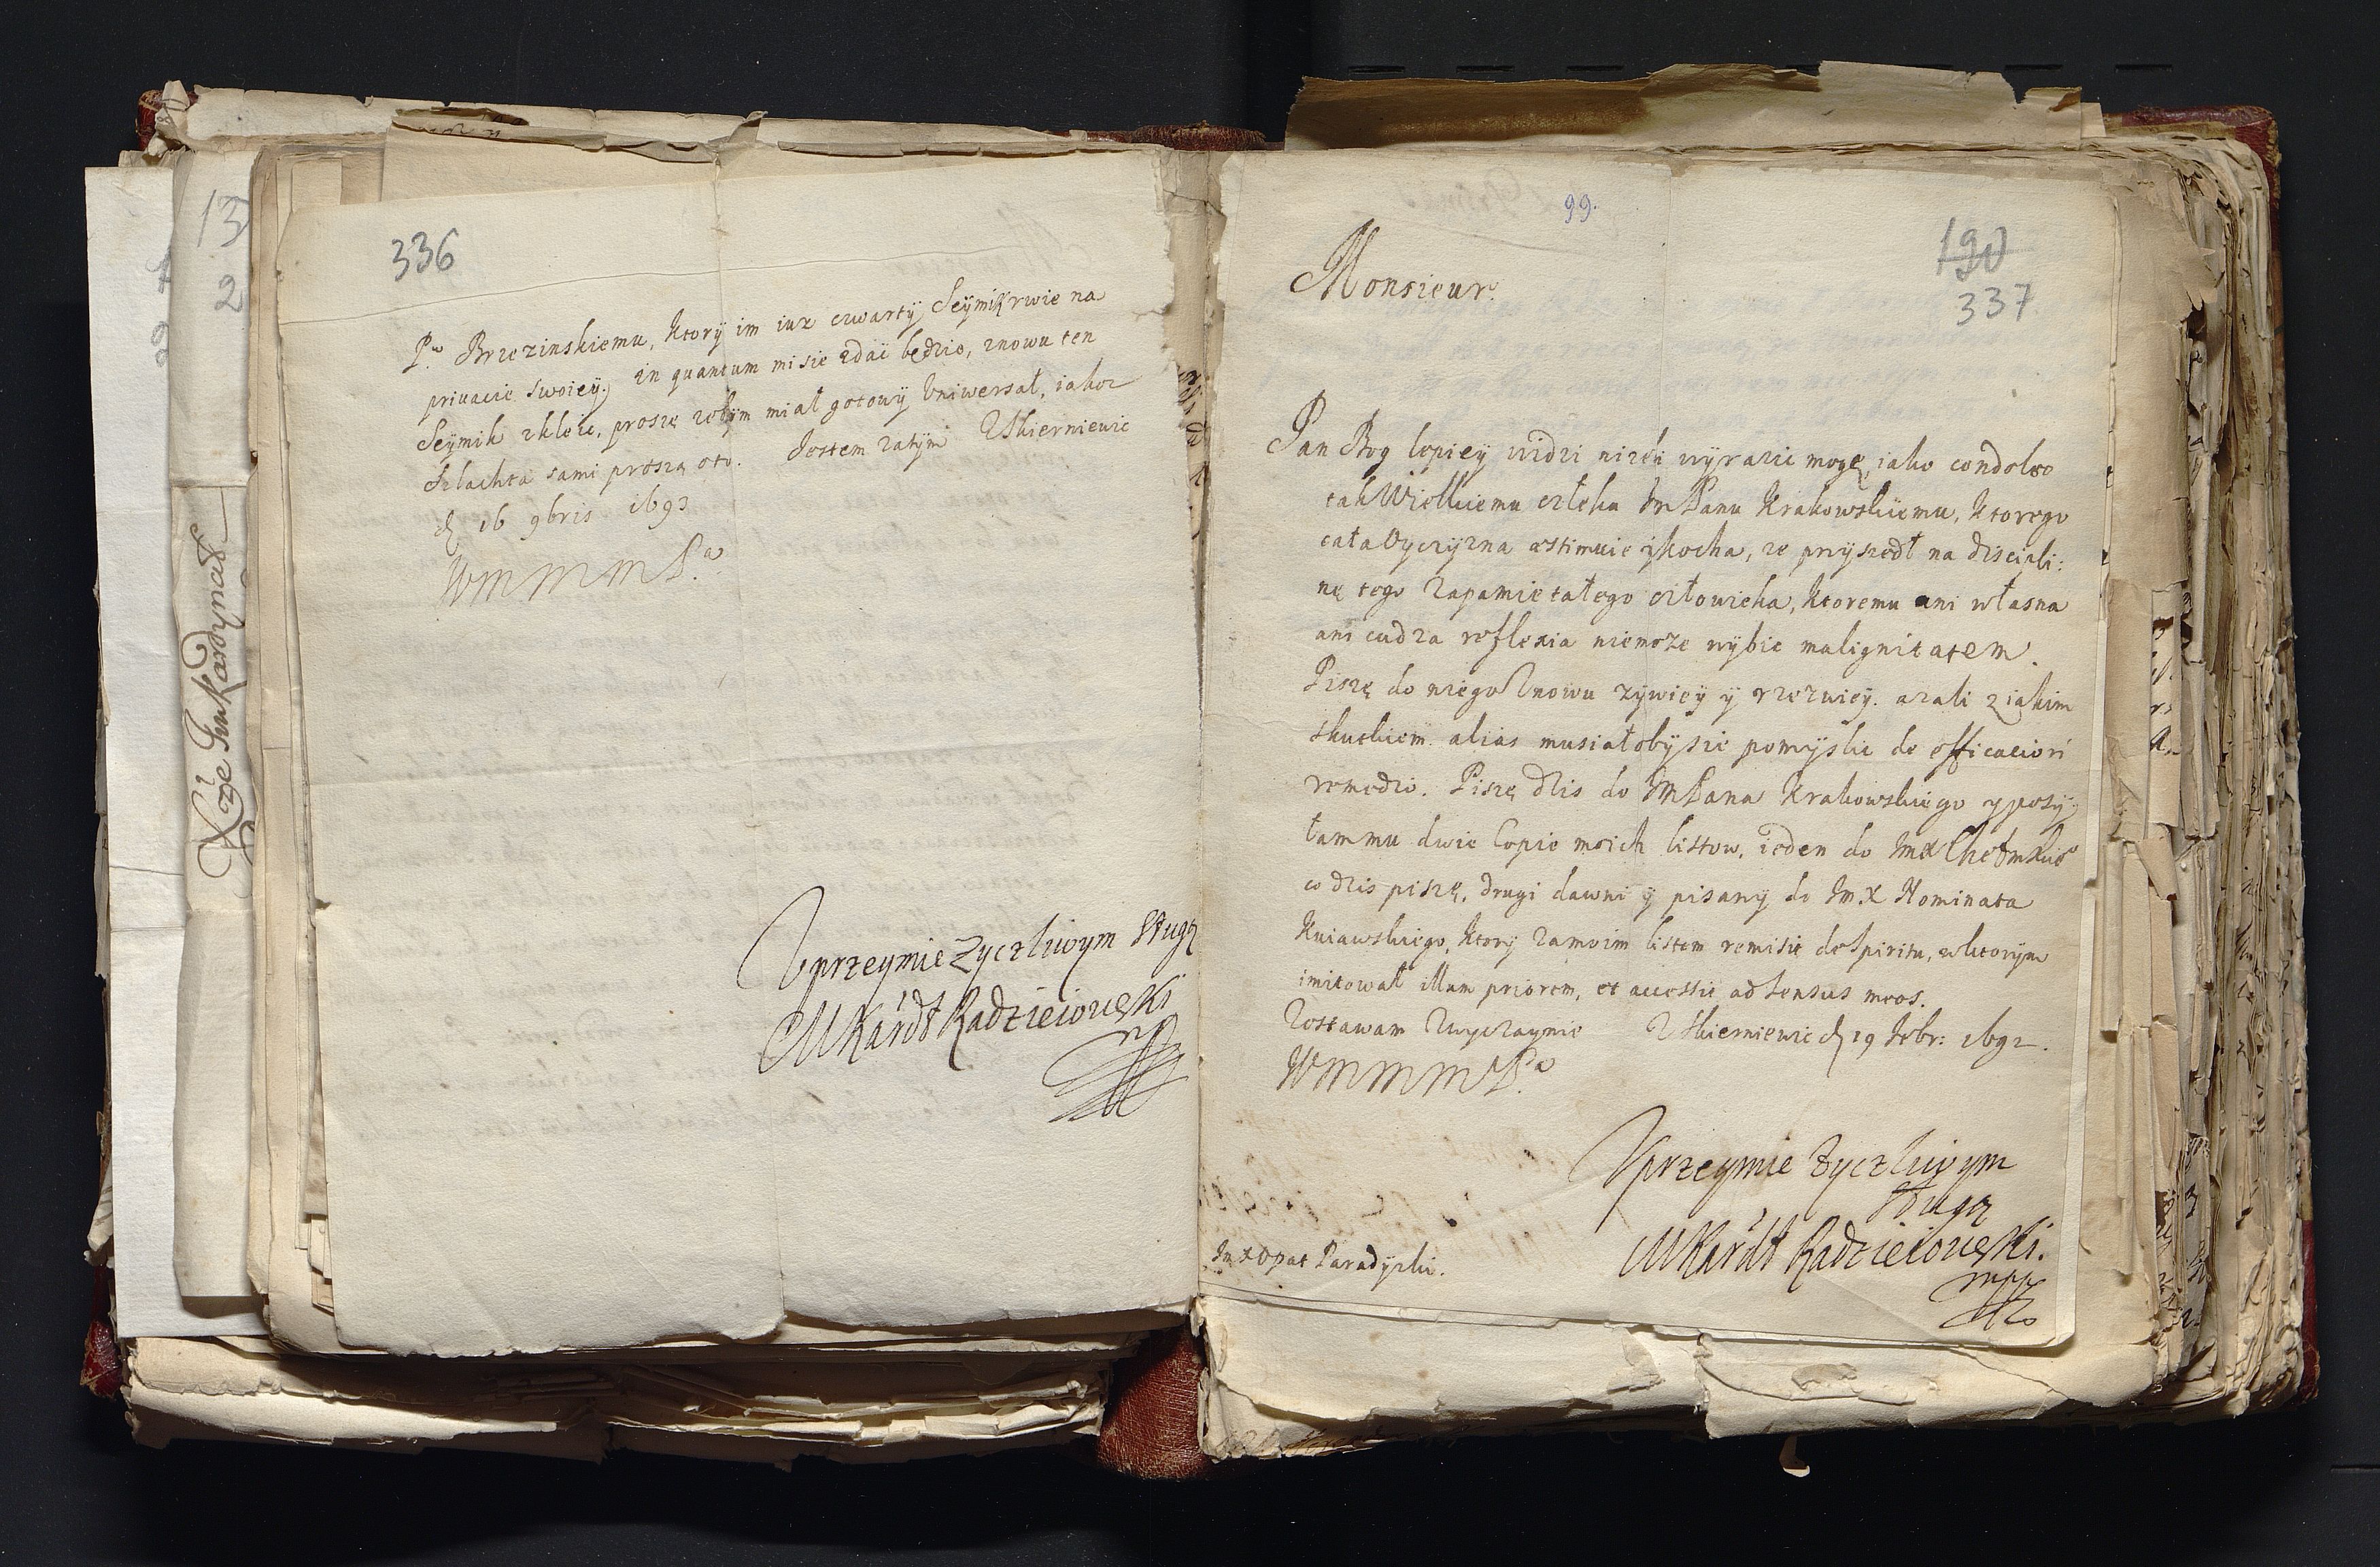 13
2
Xże Jmć Kardynał
336
P.ᵘ Brzezinskiemu, ktorÿ im iuz czwartÿ SeÿmiK rwie na
priuacie swoieÿ. in quantum mi sie zdać będzie, znowu ten
Seÿmik zlozic, proszę zebÿm miał gotowÿ Vniwersał, iakoz
Szlachta sami proszą oto. Jestem zatÿm Z Skierniewic
d. 16 9bris 1693
WMMMP.ᵃ
Vprzeymie Zyczliwym Sługą
MKárdł Radzieiowski
99.
190
337
Monsieur.
Pan Bog lepieÿ widzi nizli wÿrazic mogę, iako condoleo
tak Wielkiemu człeku JmPanu Krakowskiemu, ktorego
cała Oyczÿzna æstimuie y kocha, ze przÿszedł na discipli:
nę tego Zapamietałego człowieka, ktoremu ani własna
ani cudza reflexia niemoze wÿbic malignitatem.
Piszę do niego Znowu zÿwieÿ ÿ rzezwieÿ. azali z iakim
skutkiem. alias musiałobÿ sie pomÿslic de efficaciori
remedio. Piszę dzis do JmPana Krakowskiego y posÿ:
łam mu dwie Copie moich listow, ieden do JmX Chełmskiᵒ
co dzis piszę, drugi dawni ÿ pisanÿ do Jm.X Nominata
Kuiawskiego, ktorÿ za moim listem remisit de Spiritu, w ktorÿm
imitował illum priorem, et accessit ad Sensus meos.
Zostawam Zwyczaynie Z Skierniewic d. 19 Febr: 1692.
WMMMP.ᵃ
Vprzeymie Zyczliwym
Sługą
MKárdł Radzieiowski.
JmX Opat Paradÿzki.